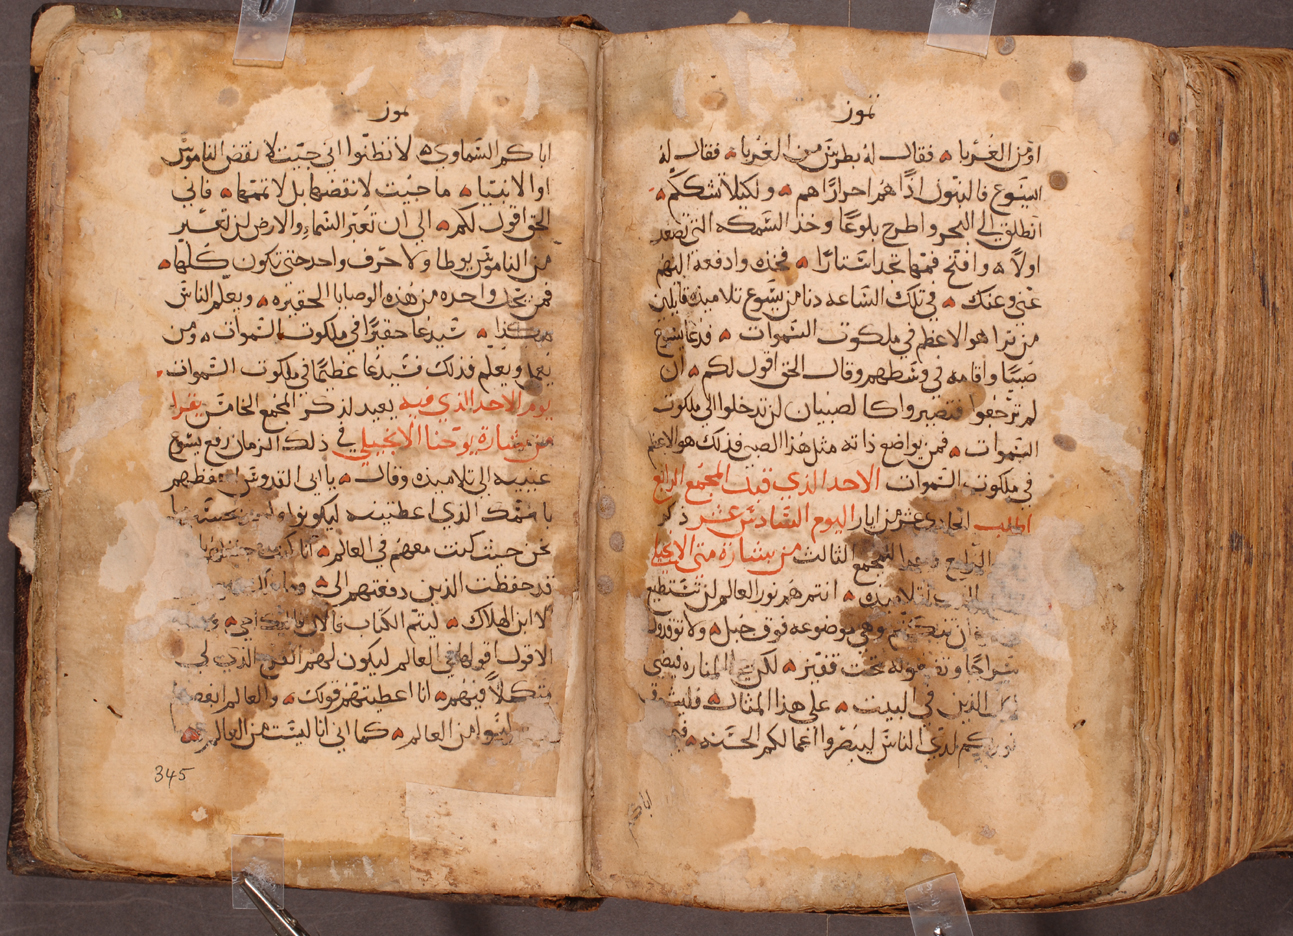 تموز
او من الغربا فقال له بطرس من الغربا فقال له
اليسوع فالبنون اذًا هم احرارًا هم ولكيلا نشككهم
انطلق الى البحر واطرح بلوعًا وخذ السمكه التي تصعد
اولاً وافتح فمها تجد استارًا فخذه وادفعه اليهم
عني وعنك في تلك الساعه دنا من يسوع تلاميذه قايلين
من ترا هو الاعظم في ملكوت السموات فدعا يسوع
صبيًا واقامه في وسطهم وقال الحق اقول لكم ان
لم ترجعوا فتصيروا كالصبيان لن تدخلوا الى ملكوت
السموات فمن يواضع ذاته مثل هذا الصبي فذلك هو الاعظم
في ملكوت السموات الاحد الذي قبل المجمع الرابع
اطلب الحادي عشر من ايار اليوم السادس عشر ذكر
الرابع المجمع الثالث من بشارة متى الانجيلي
الرب لتلاميذه انتم هم نور العالم لن تستطيع
مدينة ان وهي موضوعه فوق جبل ولا توقدون
سراجًا وتضعونه تحت قفيز لكن على المناره فيضي
لكل الذين في البيت على هذا المثال فليشرق
نوركم لدى الناس ليبصروا اعمالكم الحسنه
اباكم
تموز
اباكم السماوي لا تظنوا اني جيت لانقض الناموس
او الانبيا ما جيت لانقضها بل لاتممها فاني
الحق اقول لكم الى ان تعبر السماء والارض لن تعبر
من الناموس يوطا ولا حرف واحد حتى تكون كلها
فمن يحل واحده من هذه الوصايا الحقيره ويعلم الناس
هكذا سيدعا حقيرًا في ملكوت السموات ومن
يعمل ويعلم فذلك سيدعا عظيمًا في ملكوت السموات
يوم الاحد الذي فيه يعيد لذكر المجمع الخامس يقرا
من بشارة يوحنا الانجيلي في ذلك الزمان رفع يسوع
عينيه الى تلاميذه وقال يا ابي القدوس احفظهم
باسمك الذي اعطيتنيه ليكونوا
نحن حيث كنت معهم في العالم انا كنت
قد حفظت الذين دفعتهم الي
لا ابن الهلاك ليتم الكتاب فالان
الاقول اقولها في العالم ليكون لهم الفرح الذي لي
متكملاً فيهم انا اعطيتهم قولك والعالم ابغضهم
ليسوا من العالم كما اني انا لست من العالم
345